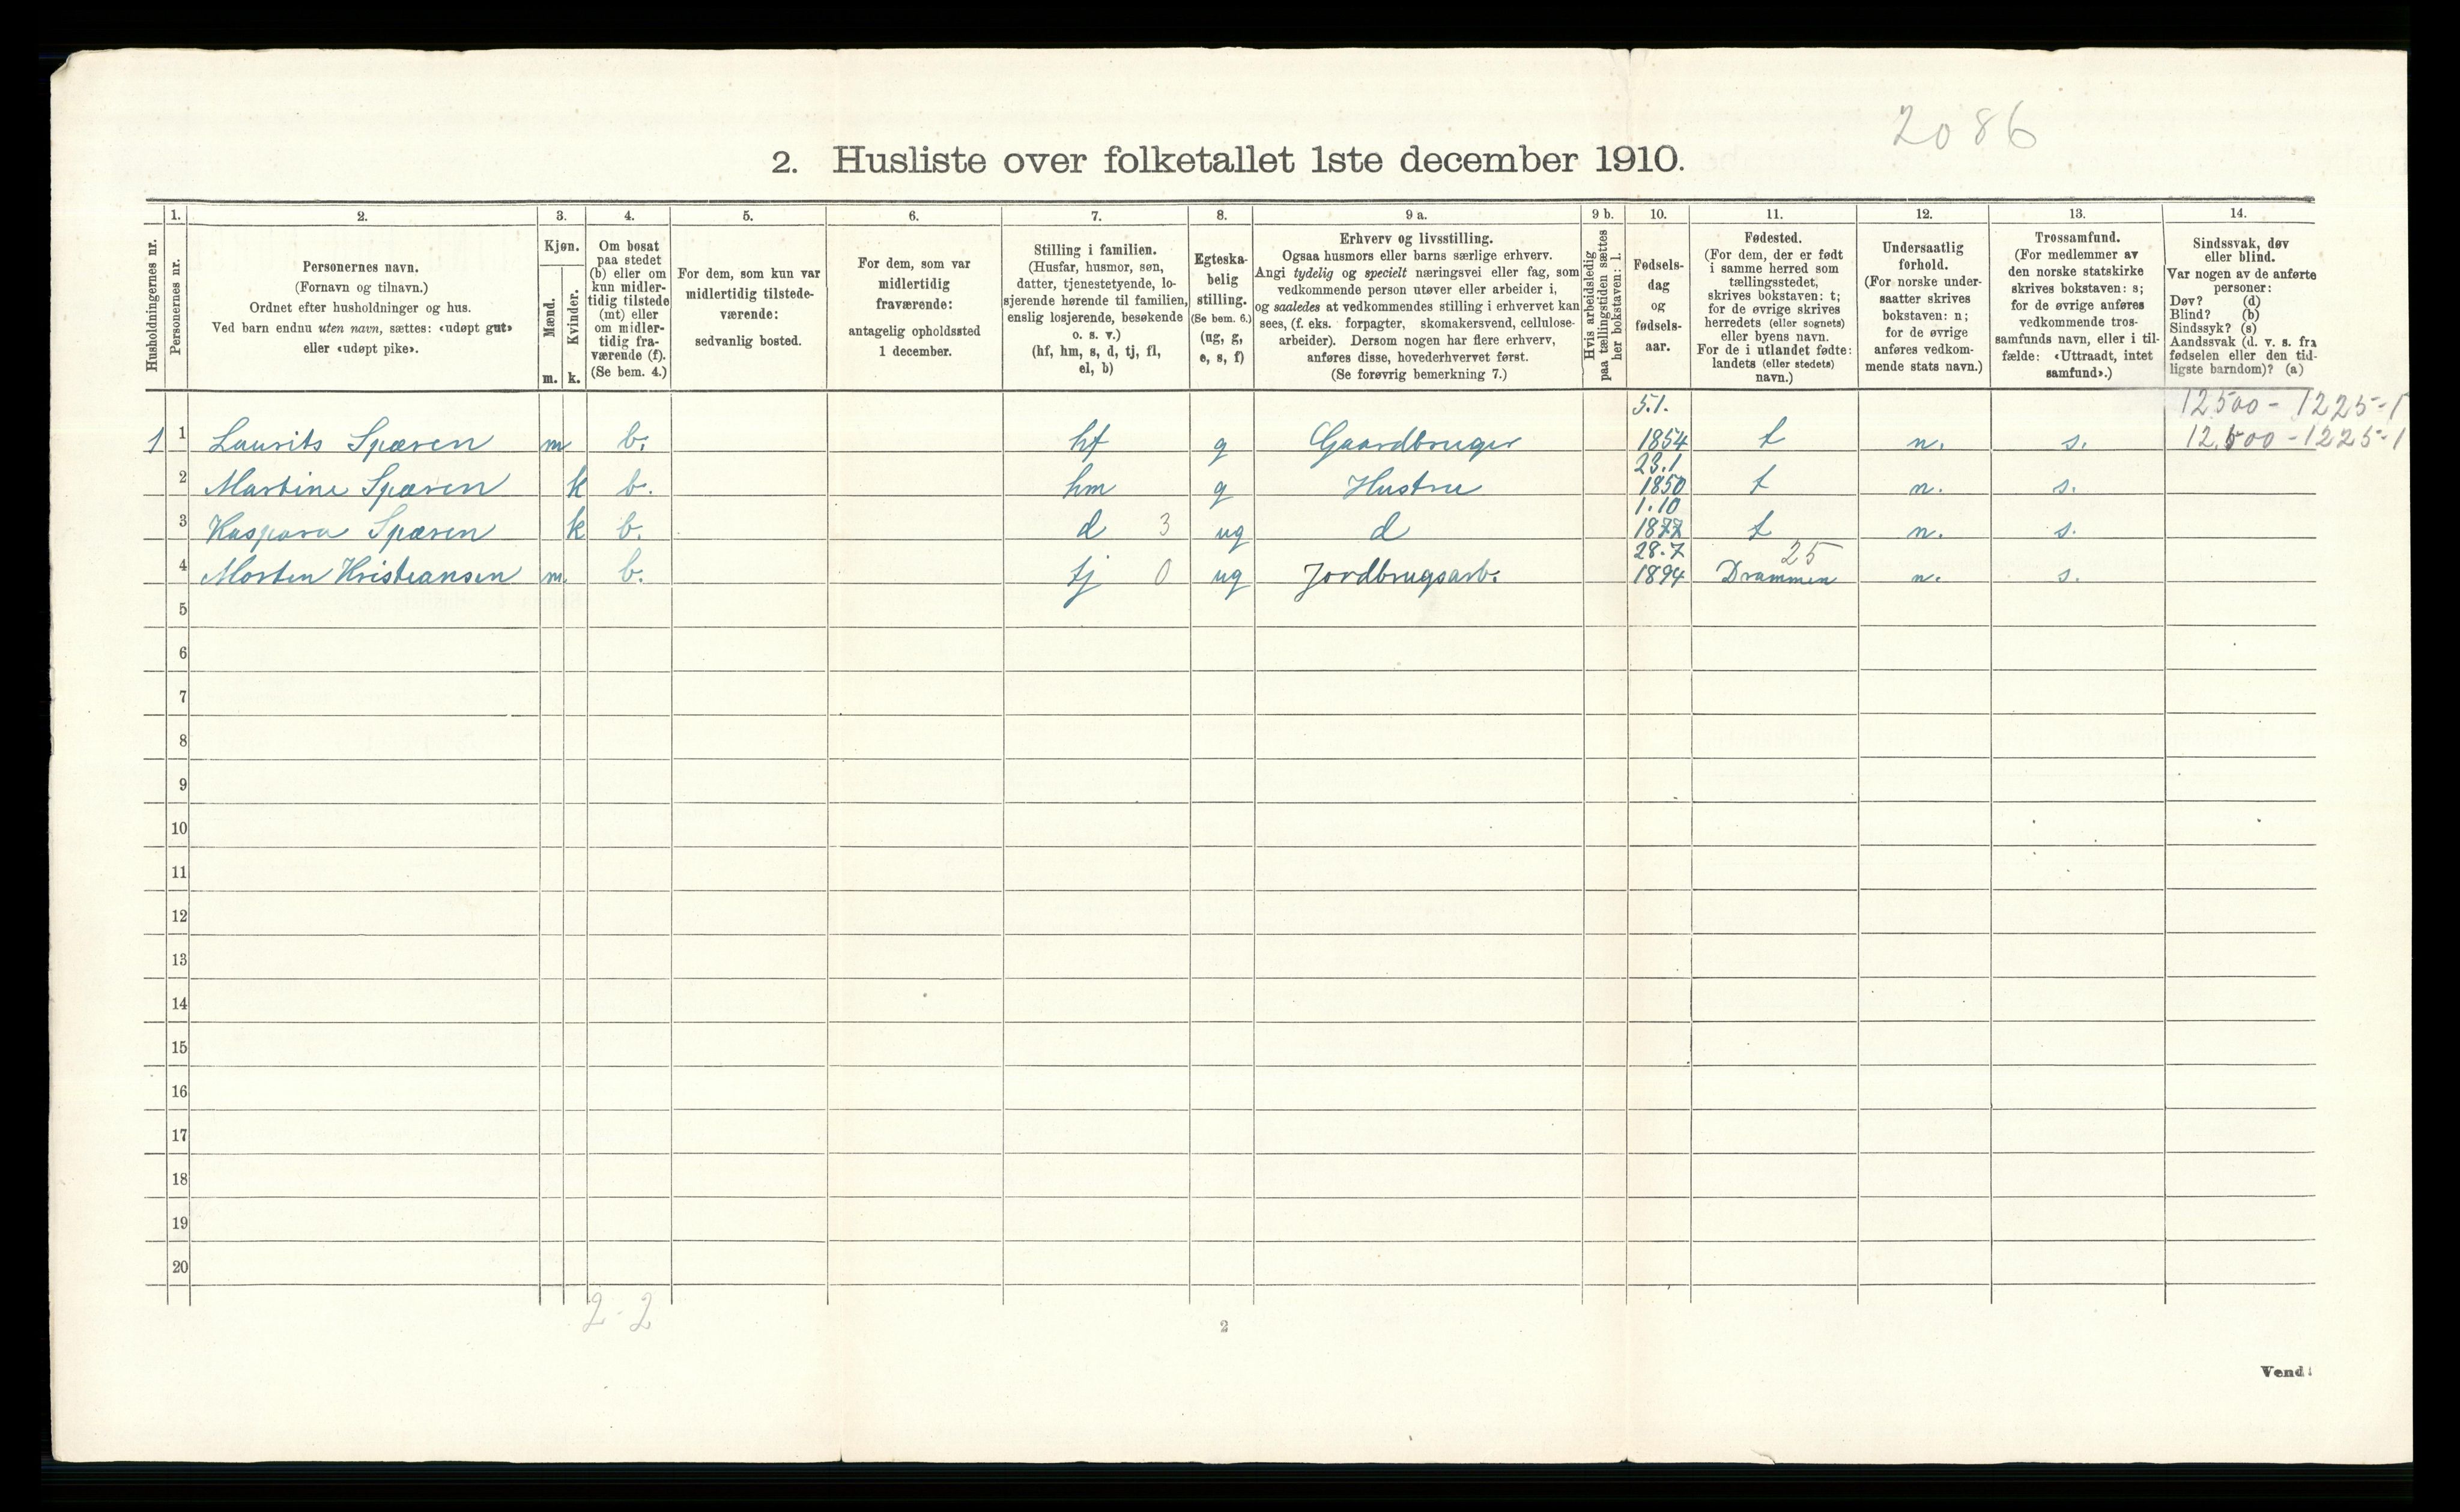 2086
2. Husliste over folketallet 1ste december 1910.
Husholdningernes nr.
1.
Personernes nr.
2.
Personernes navn.
(Fornavn og tilnavn.)
Ordnet efter husholdninger og hus.
Ved barn endnu uten navn, sættes: «udøpt gut»
eller «udøpt pike».
3.
Kjøn.
Mænd.
Kvinder.
m. k.
4.
Om bosat
paa stedet
(b) eller om
kun midler-
tidig tilstede
(mt) eller
om midler-
tidig fra-
værende (f).
(Se bem. 4.)
5.
For dem, som kun var
midlertidig tilstede-
værende:
sedvanlig bosted.
6.
For dem, som var
midlertidig
fraværende:
antagelig opholdssted
1 december.
7.
Stilling i familien.
(Husfar, husmor, søn,
datter, tjenestetyende, lo-
sjerende hørende til familien,
enslig losjerende, besøkende
o. s. v.)
(hf, hm, s, d, tj, fl,
el, b)
8.
Egteska-
belig
stilling.
(Se bem. 6.)
(ug, g,
e, s, f)
9 a.
Erhverv og livsstilling.
Ogsaa husmors eller barns særlige erhverv.
Angi tydelig og specielt næringsvei eller fag, som
vedkommende person utøver eller arbeider i,
og saaledes at vedkommendes stilling i erhvervet kan
sees, (f. eks. forpagter, skomakersvend, cellulose-
arbeider). Dersom nogen har flere erhverv,
anføres disse, hovederhvervet først.
(Se forøvrig bemerkning 7.)
9 b.
Hvis arbeidsledig
paa tællingstiden sættes
her bokstaven: l.
10.
Fødsels-
dag
og
fødsels-
aar.
11.
Fødested.
(For dem, der er født
i samme herred som
tællingsstedet,
skrives bokstaven: t;
for de øvrige skrives
herredets (eller sognets)
eller byens navn.
For de i utlandet fødte:
landets (eller stedets)
navn.)
12.
Undersaatlig
forhold.
(For norske under-
saatter skrives
bokstaven: n;
for de øvrige
anføres vedkom-
mende stats navn.)
13.
Trossamfund.
(For medlemmer av
den norske statskirke
skrives bokstaven: s;
for de øvrige anføres
vedkommende tros-
samfunds navn, eller i til-
fælde: «Uttraadt, intet
samfund».)
14.
Sindssvak, døv
eller blind.
Var nogen av de anførte
personer:
Døv? (d)
Blind? (b)
Sindssyk? (s)
Aandssvak (d. v. s. fra
fødselen eller den tid-
ligste barndom)? (a)
5.1. 12500 - 1225-1
1 1 Laurits Spæren m b. hf g Gaardbruger 1854 t n. s. 12.500 - 1225-1
23.1
2 Martine Spæren k b. hm g Hustru 1850 t n. s.
1.10
3 Kaspara Spæren k b. d 3 ug d 1877 t n. s.
28.7 25
4 Morten Kristiansen m. b. tj 0 ug Jordbrugsarb. 1894 Drammen n. s.
5
6
7
8
9
10
11
12
13
14
15
16
17
18
19
20
2-2
2
Vend!